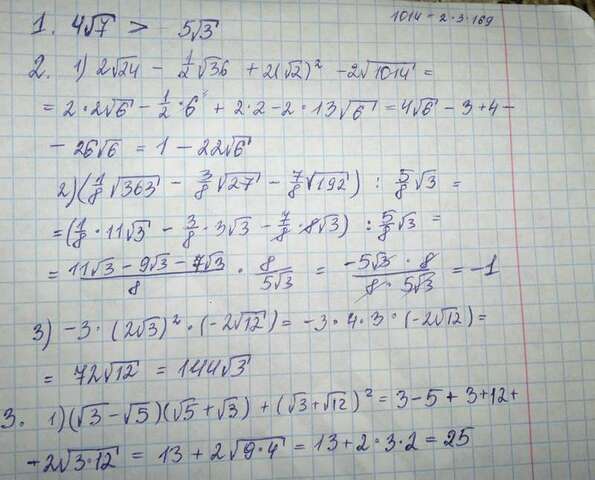 1014 = 2 · 3 · 169
1. 4√7 > 5√3
2. 1) 2√24 - 1/2 √36 + 2(√2)² - 2√1014 =
= 2 · 2√6 - 1/2 · 6 + 2 · 2 - 2 · 13√6 = 4√6 - 3 + 4 -
- 26√6 = 1 - 22√6
2) (1/8 √363 - 3/8 √27 - 7/8 √192) : 5/8 √3 =
= (1/8 · 11√3 - 3/8 · 3√3 - 7/8 · 8√3) : 5/8 √3 =
= (11√3 - 9√3 - 7√3)/8 · 8/(5√3) = (-5√3 · 8)/(8 · 5√3) = -1
3) -3 · (2√3)² · (-2√12) = -3 · 4 · 3 · (-2√12) =
= 72√12 = 144√3
3. 1) (√3 - √5)(√5 + √3) + (√3 + √12)² = 3 - 5 + 3 + 12 +
+ 2√3·12 = 13 + 2√9·4 = 13 + 2 · 3 · 2 = 25